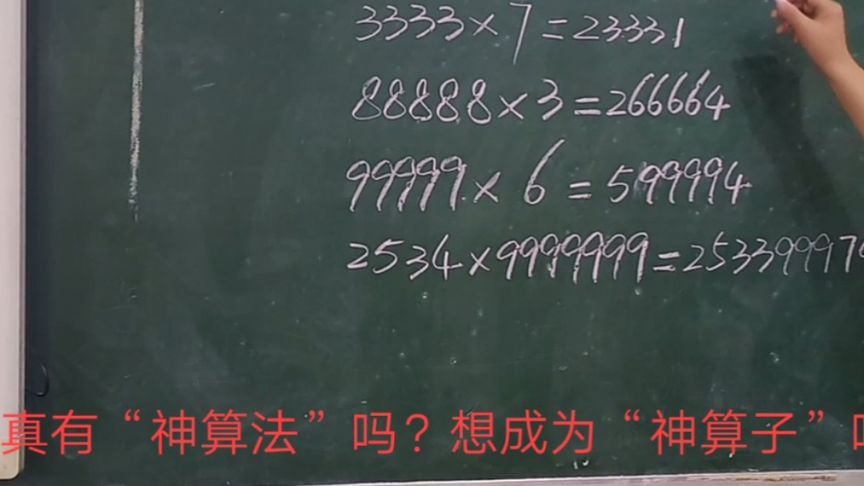 3333×7=23331
88888×3=266664
99999×6=599994
2534×9999999=253399979
真有“神算法”吗？想成为“神算子”